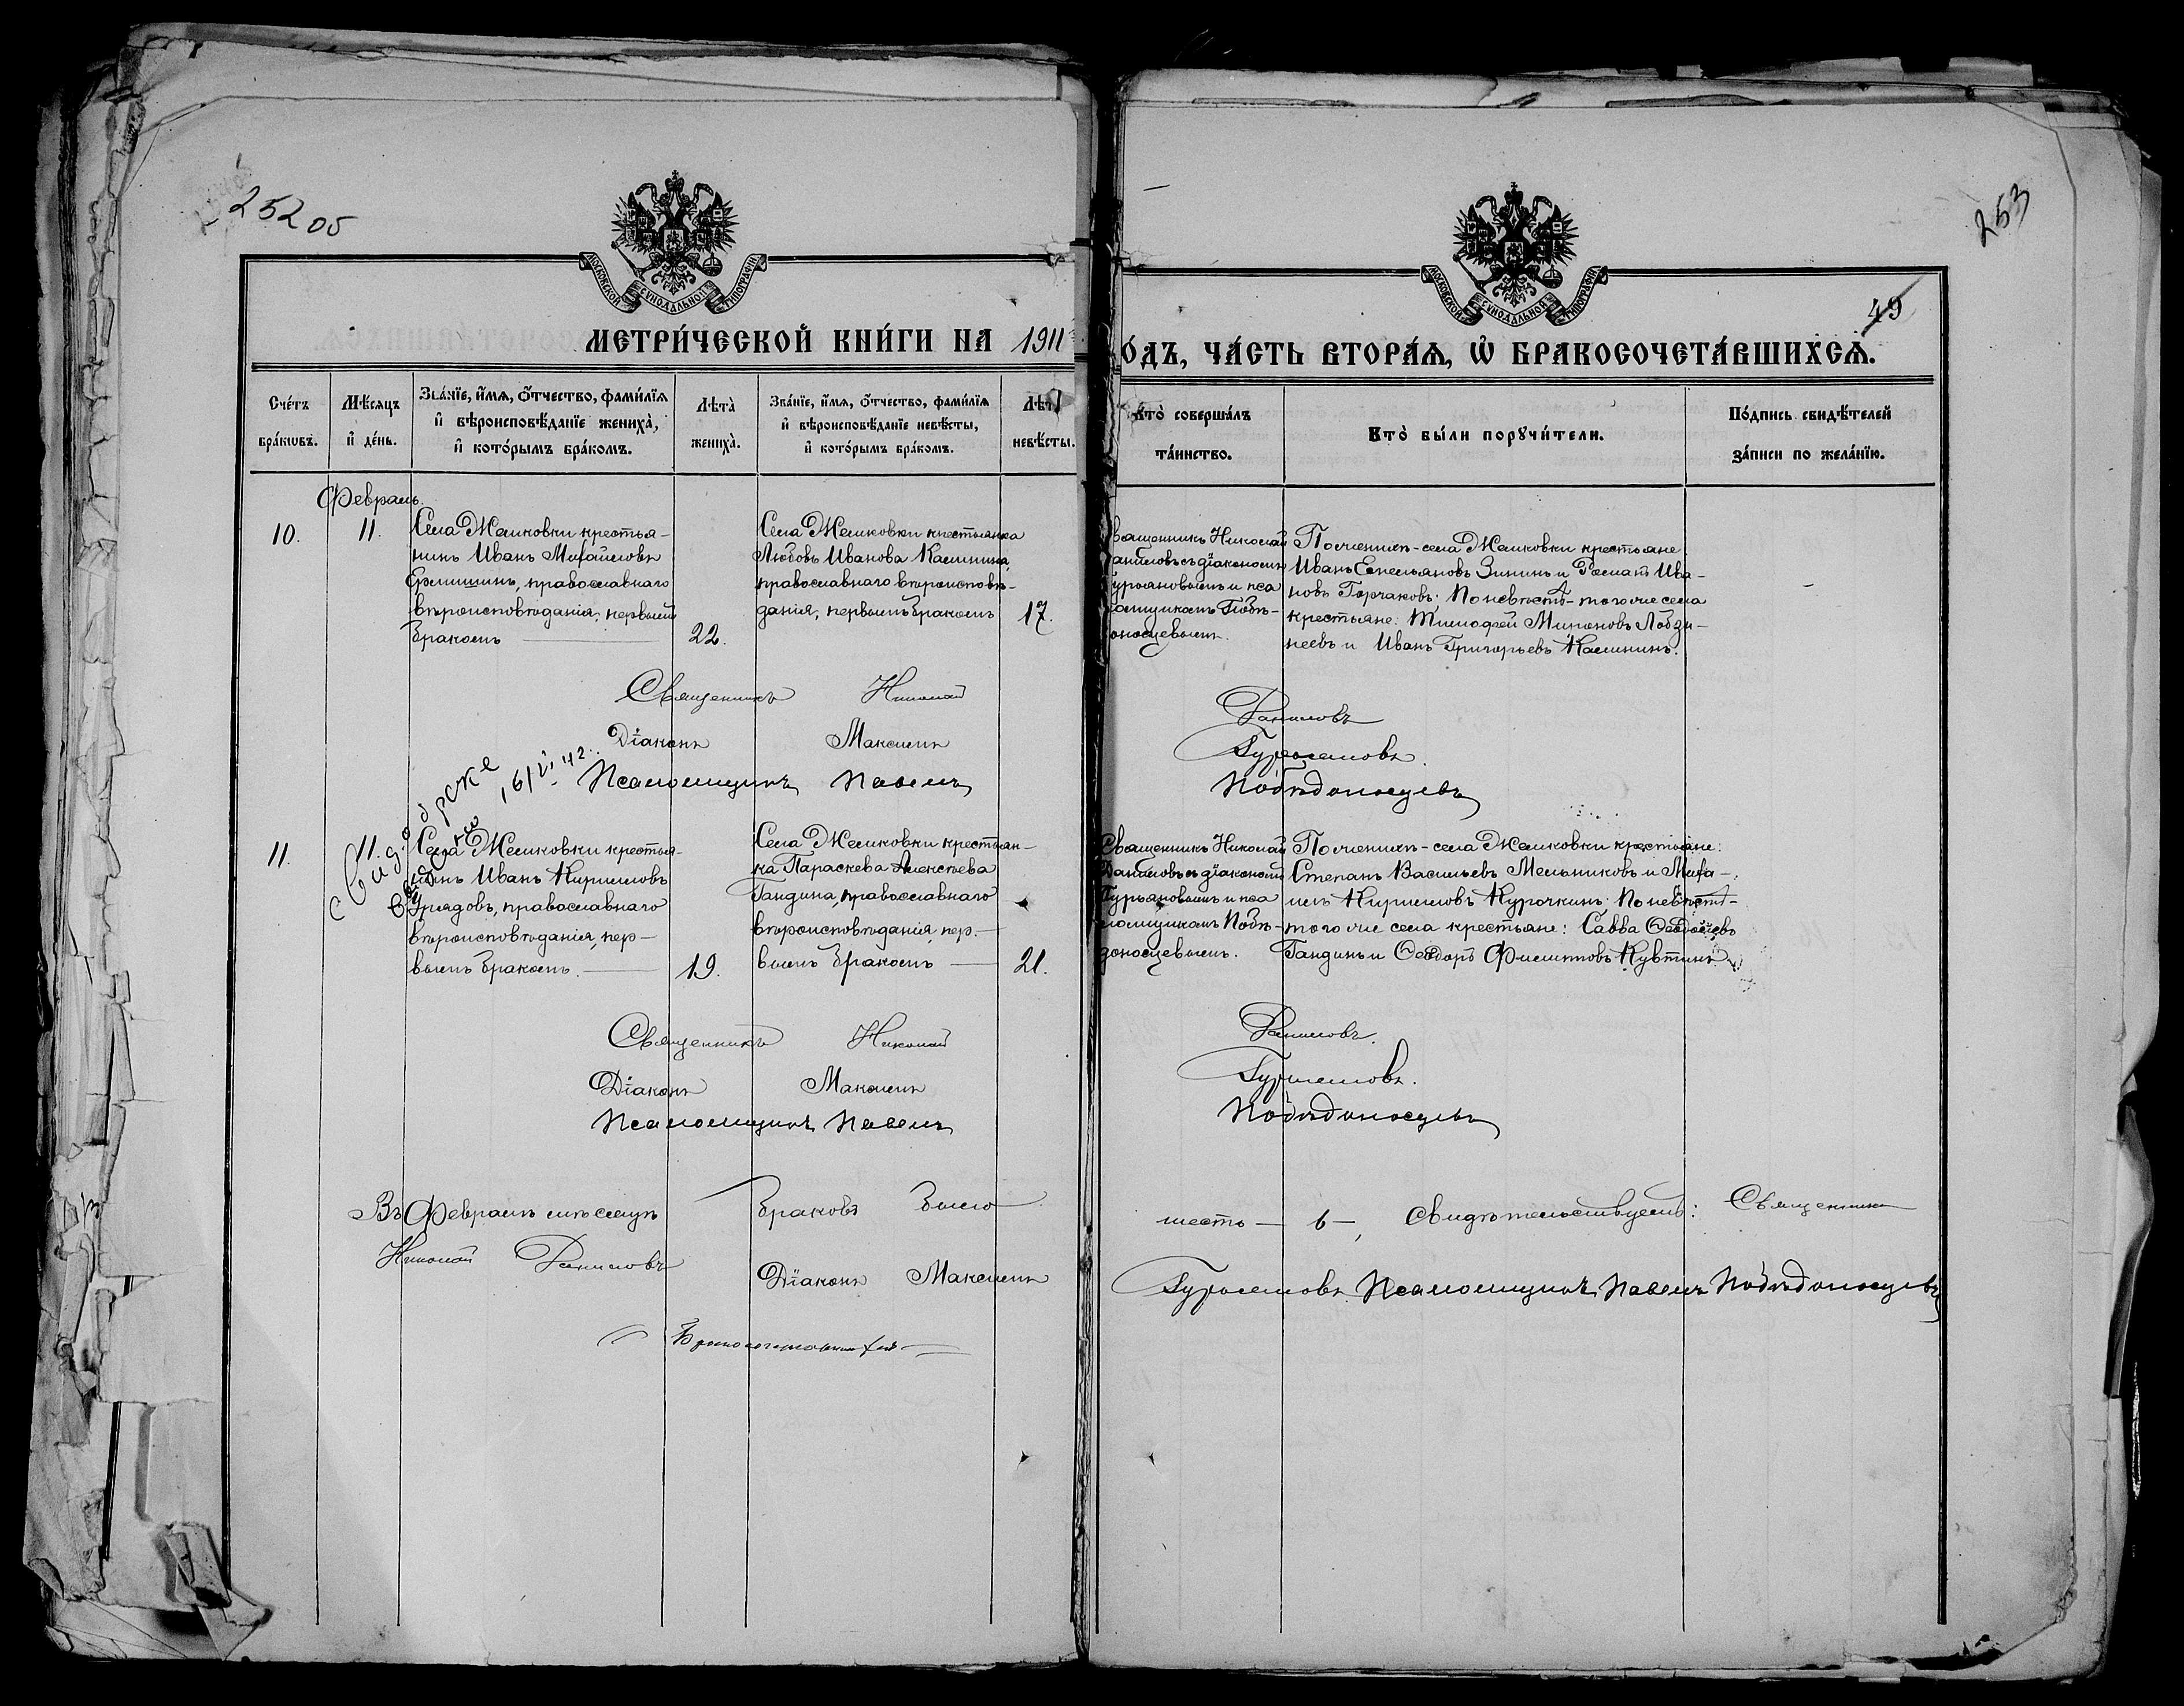 252 об
253
49
МОСКОВСКОЙ СѴНОДАЛЬНОЙ ТИПОГРАФІИ
МОСКОВСКОЙ СѴНОДАЛЬНОЙ ТИПОГРАФІИ
МЕТРИ́ЧЕСКОЙ КНИ́ГИ НА 1911
О́ДЪ, ЧА́СТЬ ВТОРА́Я, Ѡ҆ БРАКОСОЧЕТА́ВШИХСѦ.
Сче́тъ бра́кѡвъ.
Мѣ́сяцъ и҆ де́нь.
Зва́нїе, и҆́мѧ, ѻ҆́тчество, фами́лїѧ и҆ вѣроисповѣ́данїе жениха̀, и҆ кото́рымъ бра́комъ.
Лѣта̀ жениха̀.
Зва́нїе, и҆́мѧ, ѻ҆́тчество, фами́лїѧ и҆ вѣроисповѣ́данїе невѣ́сты, и҆ кото́рымъ бра́комъ.
Лѣта̀ невѣ́сты.
Кто̀ соверша́лъ та́инство.
Кто̀ бы́ли порꙋчи́тели.
По́дпись свидѣ́телей за́писи по жела́нїю.
Февраль.
10.
11.
Села Жемковки крестья-
нинъ Иванъ Михайловъ
православнаго
вѣроисповѣданія, первымъ
бракомъ
22.
Села Жемковки крестьянка
Любовь Иванова Калинина,
православнаго вѣроисповѣ-
данія, первымъ бракомъ
17.
вященникъ Николай
аниловъ съ діакономъ
урьяновымъ и пса
ломщикомъ Побѣ-
доносцевымъ.
По женихѣ - села Жемковки крестьяне
Иванъ Емельяновъ Зининъ и Романъ Ива-
новъ Горчаковъ; По невѣстѣ - того же села
крестьяне: Тимофей Мироновъ Лобза-
неевъ и Иванъ Григорьевъ Калининъ.
Священникъ Николай Даниловъ
Діаконъ Максимъ Гурьяновъ.
Псаломщикъ Павелъ Побѣдоносцевъ
11.
11.
Села Жемковки крестья-
нинъ Иванъ Кирилловъ
православнаго
вѣроисповѣданія, пер-
вымъ бракомъ.
19.
Села Жемковки крестьян-
ка Параскева Алексѣева
Гандина, православнаго
вѣроисповѣданія, пер-
вымъ бракомъ
21.
Священникъ Николай
Даниловъ съ діакономъ
Гурьяновымъ и пса
ломщикомъ Побѣ-
доносцевымъ.
По женихѣ - села Жемковки крестьяне:
Степанъ Васильевъ Мельниковъ и Миха-
илъ Кирилловъ Курочкинъ. По невѣстѣ -
того же села крестьяне: Савва
Гандинъ и Ѳеодоръ Филипповъ Кувтинъ.
Священникъ Николай Даниловъ.
Діаконъ Максимъ Гурьяновъ.
Псаломщикъ Павелъ Побѣдоносцевъ
Въ Февралѣ мѣсяцѣ браковъ было шесть — 6 —, свидѣтельствуемъ: Священникъ
Николай Даниловъ Діаконъ Максимъ Гурьяновъ Псаломщикъ Павелъ Побѣдоносцевъ